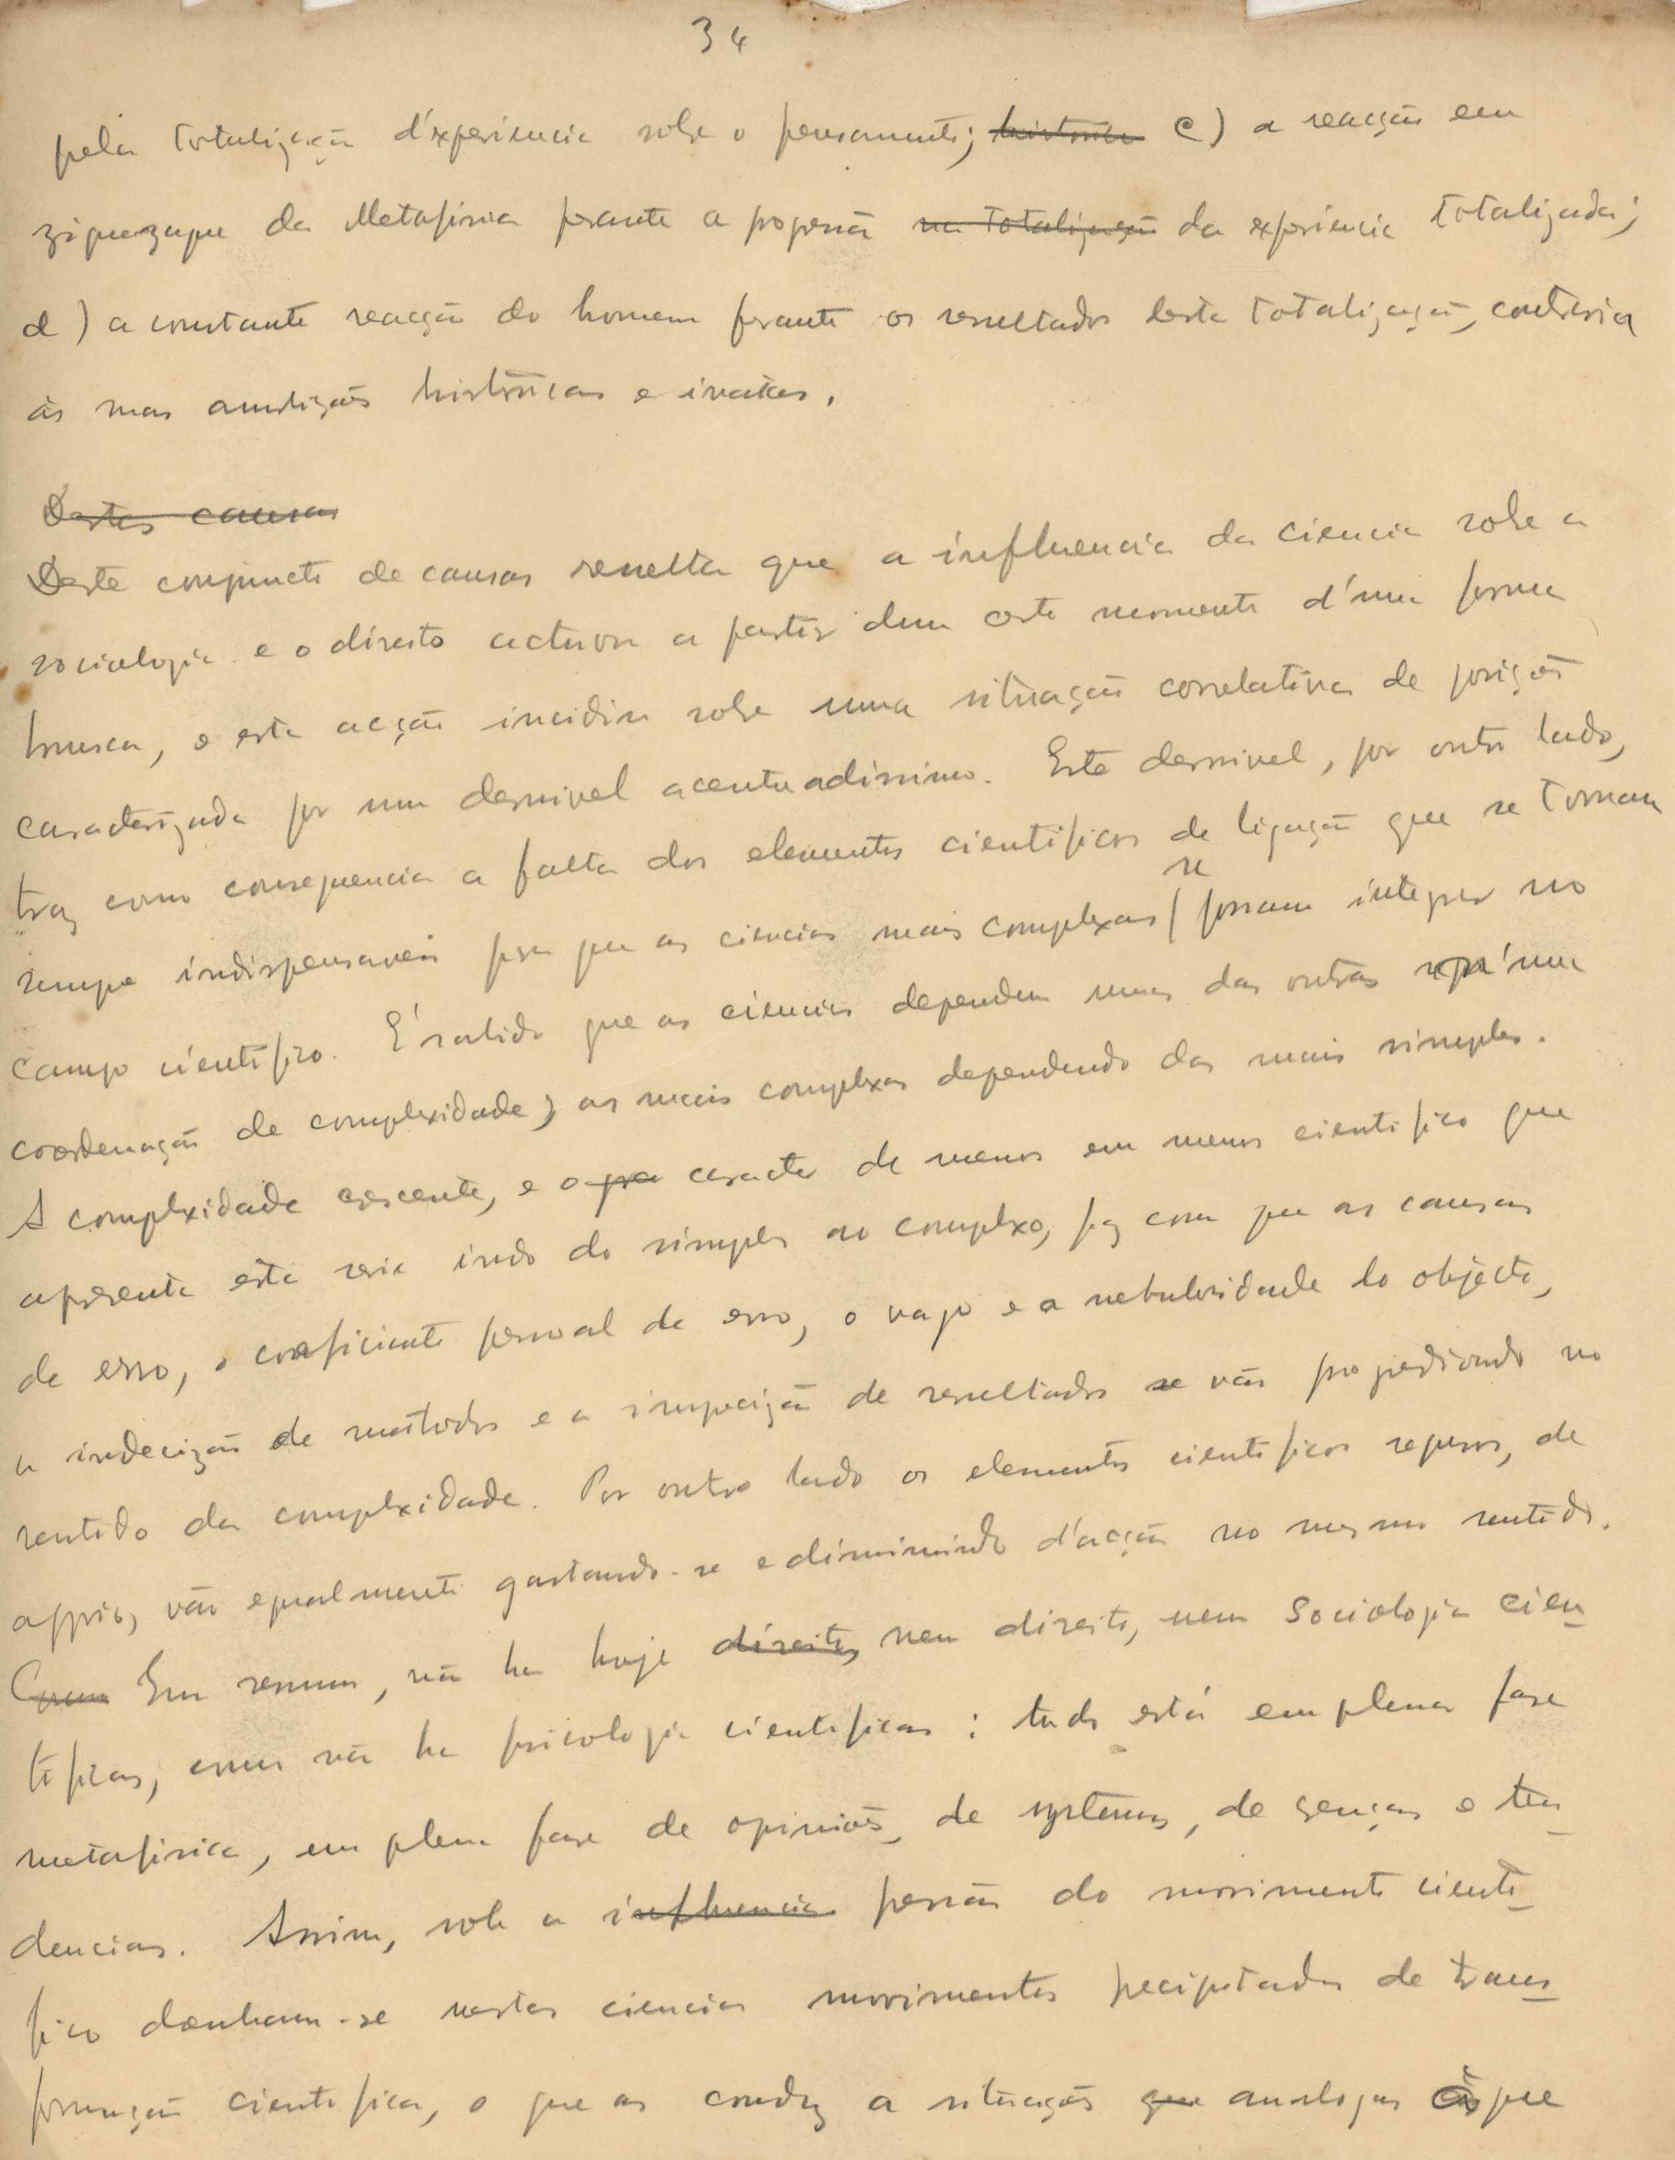 34
pela totalização d'experiencia sobre o pensamento; historica c) a reacção em
ziguezague da Metafisica perante a progressão na totalização da experiencia totalizada;
d) a constante reacção do homem perante os resultados desta totalização, contraria
ás suas condições históricas e inatas.
Destas causas
Deste conjuncto de causas resulta que a influencia da ciencia sobre a
sociologia e o direito actuou a partir dum certo momento d'uma forma
brusca, e esta acção incidiu sobre uma situação correlativa de posições
caracterizada por um desnivel acentuadissimo. Este desnivel, por outro lado,
traz como consequencia a falta dos elementos cientificos de ligação que se tornam
sempre indispensaveis para que as ciencias mais complexas se possam integrar no
campo cientifico. É sabido que as ciencias dependem umas das outras numa
coordenação de complexidade, as mais complexas dependendo das mais simples.
A complexidade crescente, e o caracter de menos em menos cientifico que
apresenta esta serie indo do simples ao complexo, faz com que as causas
de erro, o coeficiente pessoal de erro, o vago e a nebulosidade do objecto,
a indecizão de métodos e a impecizão de resultados se vão progredindo no
sentido da complexidade. Por outro lado os elementos cientificos seguros, de
appoio, vão egualmente gastando-se e diminuindo d'acção no mesmo sentido.
Em resumo, não ha hoje direito, nem direito, nem Sociologia cien_
tificas, como não ha psicologia cientificas: tudo está em plena fase
metafisica, em plena fase de opiniões, de systemas, de crenças e ten_
dencias. Assim, sob a influencia pressão do movimento cienti_
fico desenham-se nestas ciencias movimentos precipitados de trans_
formação cientifica, o que as conduz a situações que analogas ás que